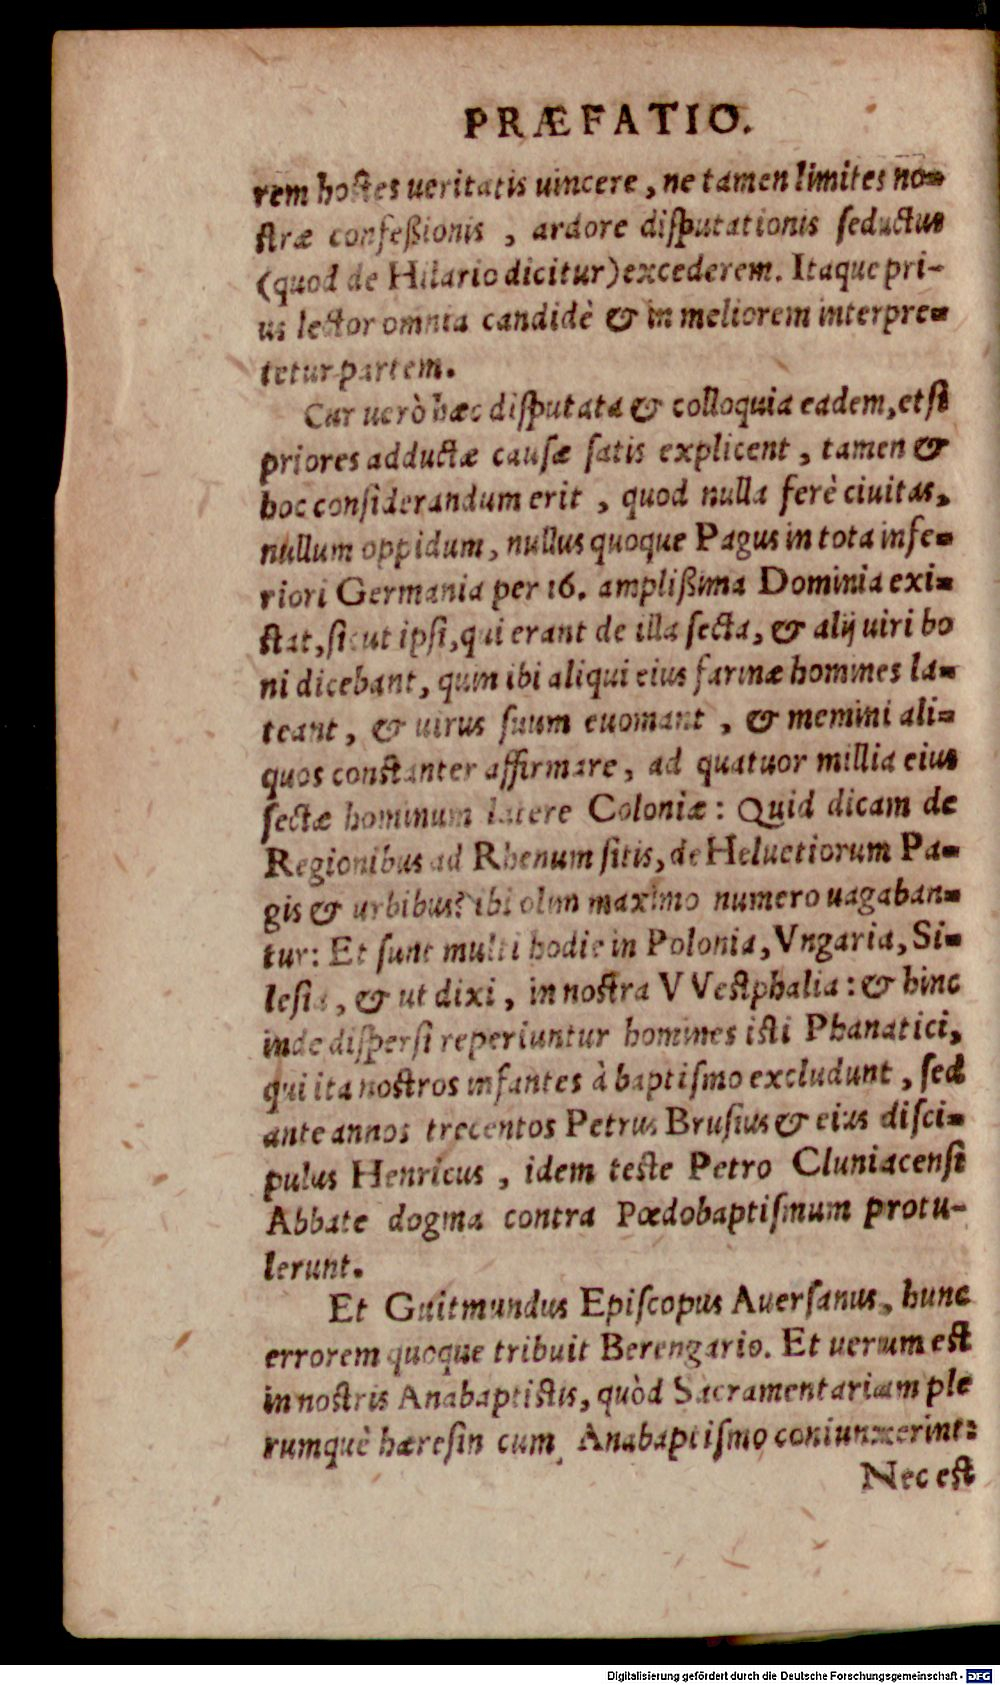 PRÆFATIO.
rem hostes ueritatis uincere, ne tamen limites no-
stræ confeßionis, ardore disputationis seductus
(quod de Hilario dicitur) excederem. Itaque pri-
us lector omnia candidè & in meliorem interpre-
tetur partem.
Cur uerò hæc disputata & colloquia eadem, etsi
priores adductæ causæ satis explicent, tamen &
hoc considerandum erit, quod nulla ferè ciuitas,
nullum oppidum, nullus quoque Pagus in tota infe-
riori Germania per 16. amplißima Dominia exi-
stat, sicut ipsi, qui erant de illa secta, & alij uiri bo
ni dicebant, quin ibi aliqui eius farinæ homines la-
teant, & uirus suum euomant, & memini ali-
quos constanter affirmare, ad quatuor millia eius
sectæ hominum latere Coloniæ: Quid dicam de
Regionibus ad Rhenum sitis, de Heluetiorum Pa-
gis & urbibus? ibi olim maximo numero uagaban-
tur: Et sunt multi hodie in Polonia, Vngaria, Si-
lesia, & ut dixi, in nostra VVestphalia: & hinc
inde dispersi reperiuntur homines isti Phanatici,
qui ita nostros infantes à baptismo excludunt, sed
ante annos trecentos Petrus Brusius & eius disci-
pulus Henricus, idem teste Petro Cluniacensi
Abbate dogma contra Pœdobaptismum protu-
lerunt.
Et Guitmundus Episcopus Auersanus, hunc
errorem quoque tribuit Berengario. Et uerum est
in nostris Anabaptistis, quòd Sacramentariam ple
rumquè hæresin cum Anabaptismo coniunxerint:
Nec est
Digitalisierung gefördert durch die Deutsche Forschungsgemeinschaft - DFG